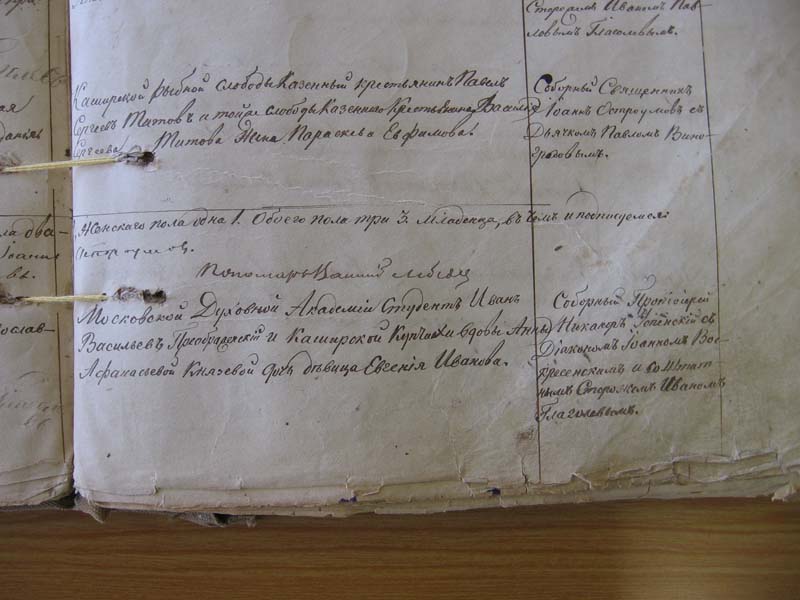 Сторожемъ Иваномъ Пав-
ловымъ Глаголевымъ.
Каширской рыбной слободы Казенный крестьянинъ Павелъ
Сергѣевъ Титовъ и тойже слободы Казеннаго Крестьянина Василія
Сергѣева Титова Жена Параскева Евфимова.
Соборный Священникъ
Іоаннъ Остроумовъ съ
Дьячкомъ Павломъ Вино-
градовымъ.
Женскаго пола одна 1. Обоего пола три 3. младенца, въ чемъ и подписуемся:
Пономарь
Московской Духовной Академіи Студентъ Иванъ
Васильевъ Преображенскій и Каширской Купчихи вдовы Анны
Афанасьевой Князевой дочь дѣвица Евгенія Иванова.
Соборный Протоіерей
Никаноръ Успенскій съ
Діакономъ Іоанномъ Вос-
кресенскимъ и со Штат-
нымъ Сторожемъ Иваномъ
Глаголевымъ.